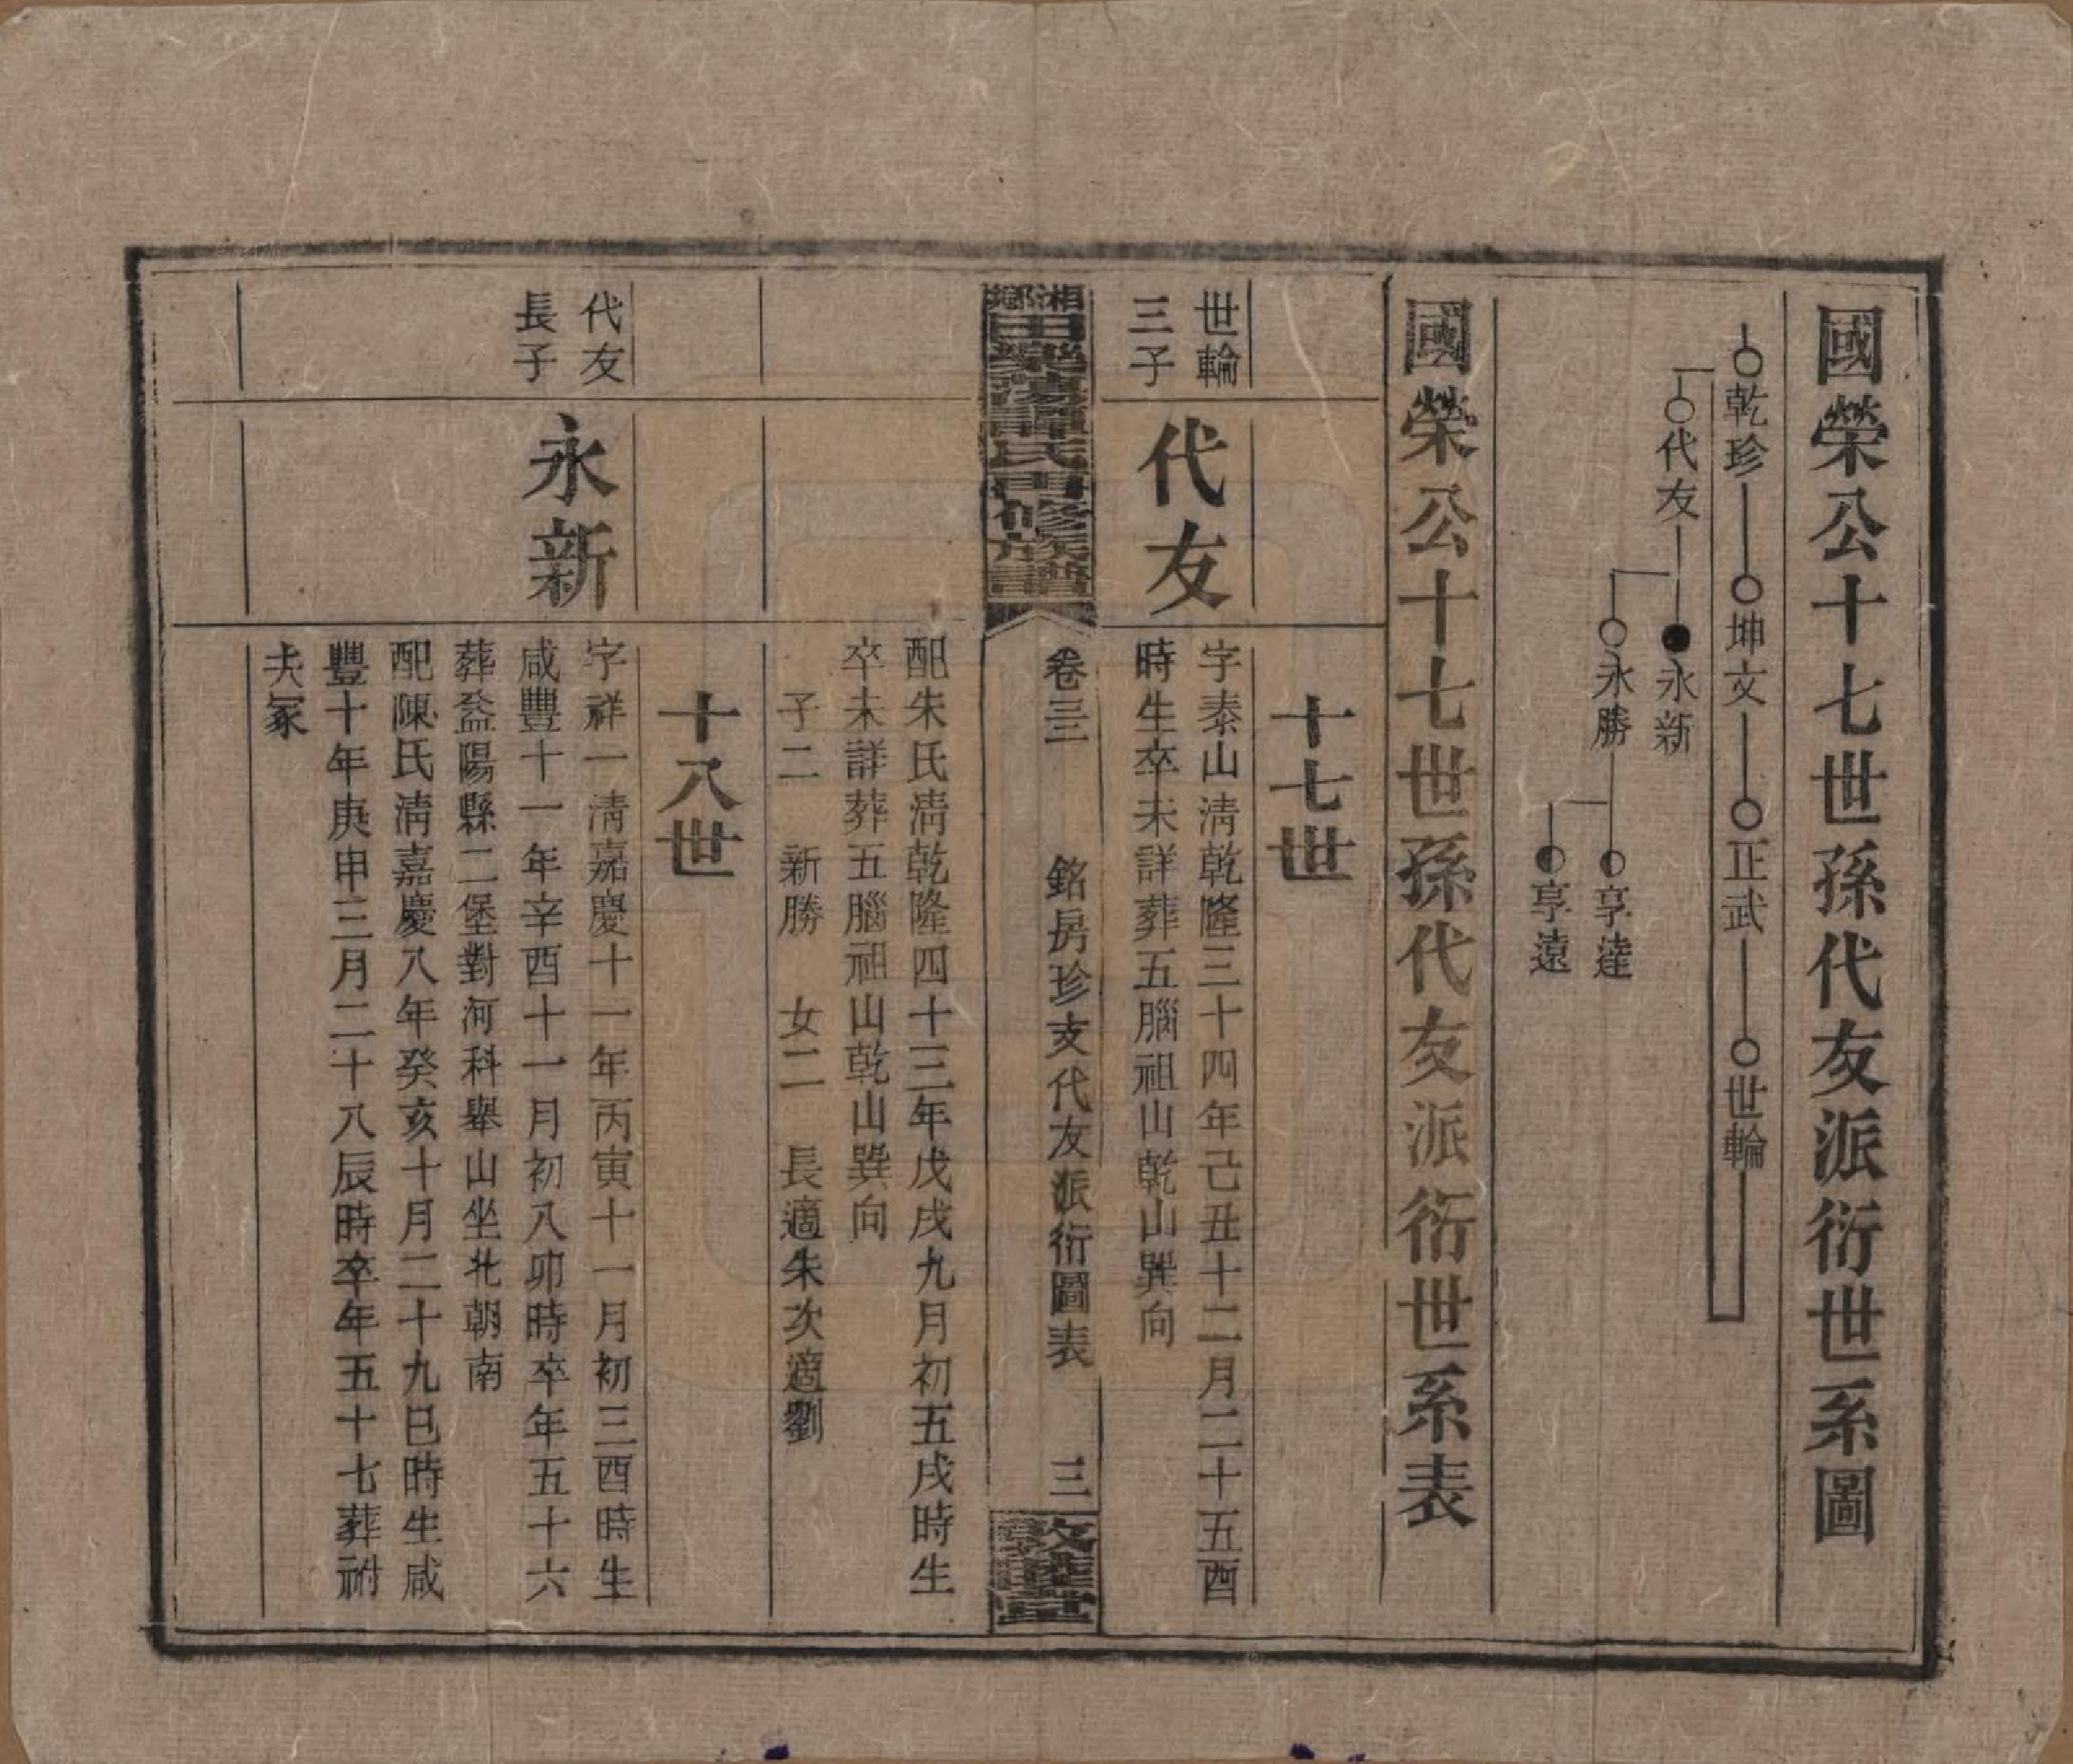 國榮公十七世孫代友派衍世系圖
乾珍 坤文 正武 世輪
代友
永新
永勝
享達
享遠
國榮公十七世孫代友派衍世系表
十七世
世輪
三子
代友
字泰山清乾隆三十四年己丑十二月二十五酉
時生卒未詳葬五腦祖山乾山巽向
湘鄉
田樂蕩譚氏再修族譜
卷三 銘房珍支代友派衍圖表 三
敦睦堂
配朱氏清乾隆四十三年戊戌九月初五戌時生
卒未詳葬五腦祖山乾山巽向
子二 新勝 女二 長適朱次適劉
十八世
代友
長子
永新
字祥一清嘉慶十一年丙寅十一月初三酉時生
咸豐十一年辛酉十一月初八卯時卒年五十六
葬益陽縣二堡對河科舉山坐北朝南
配陳氏清嘉慶八年癸亥十月二十九巳時生咸
豐十年庚申三月二十八辰時卒年五十七葬祔
夫冢